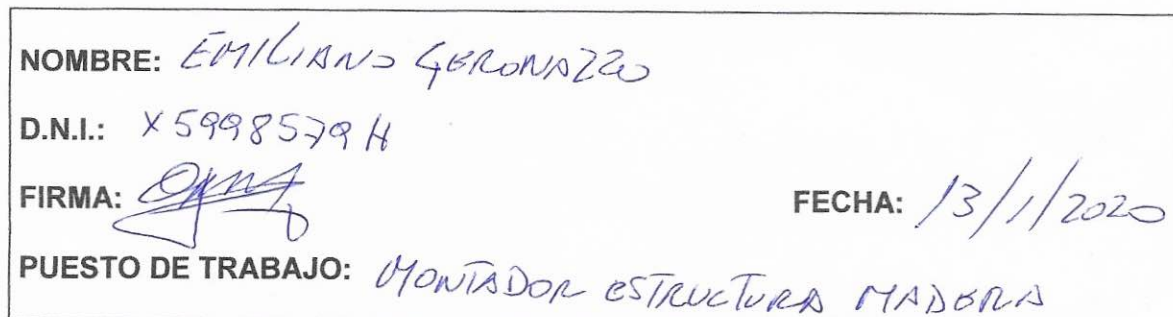 NOMBRE: EMILIANO GERONAZZO
D.N.I.: X5998579H
FIRMA: FECHA: 13/1/2020
PUESTO DE TRABAJO: MONTADOR ESTRUCTURA MADERA